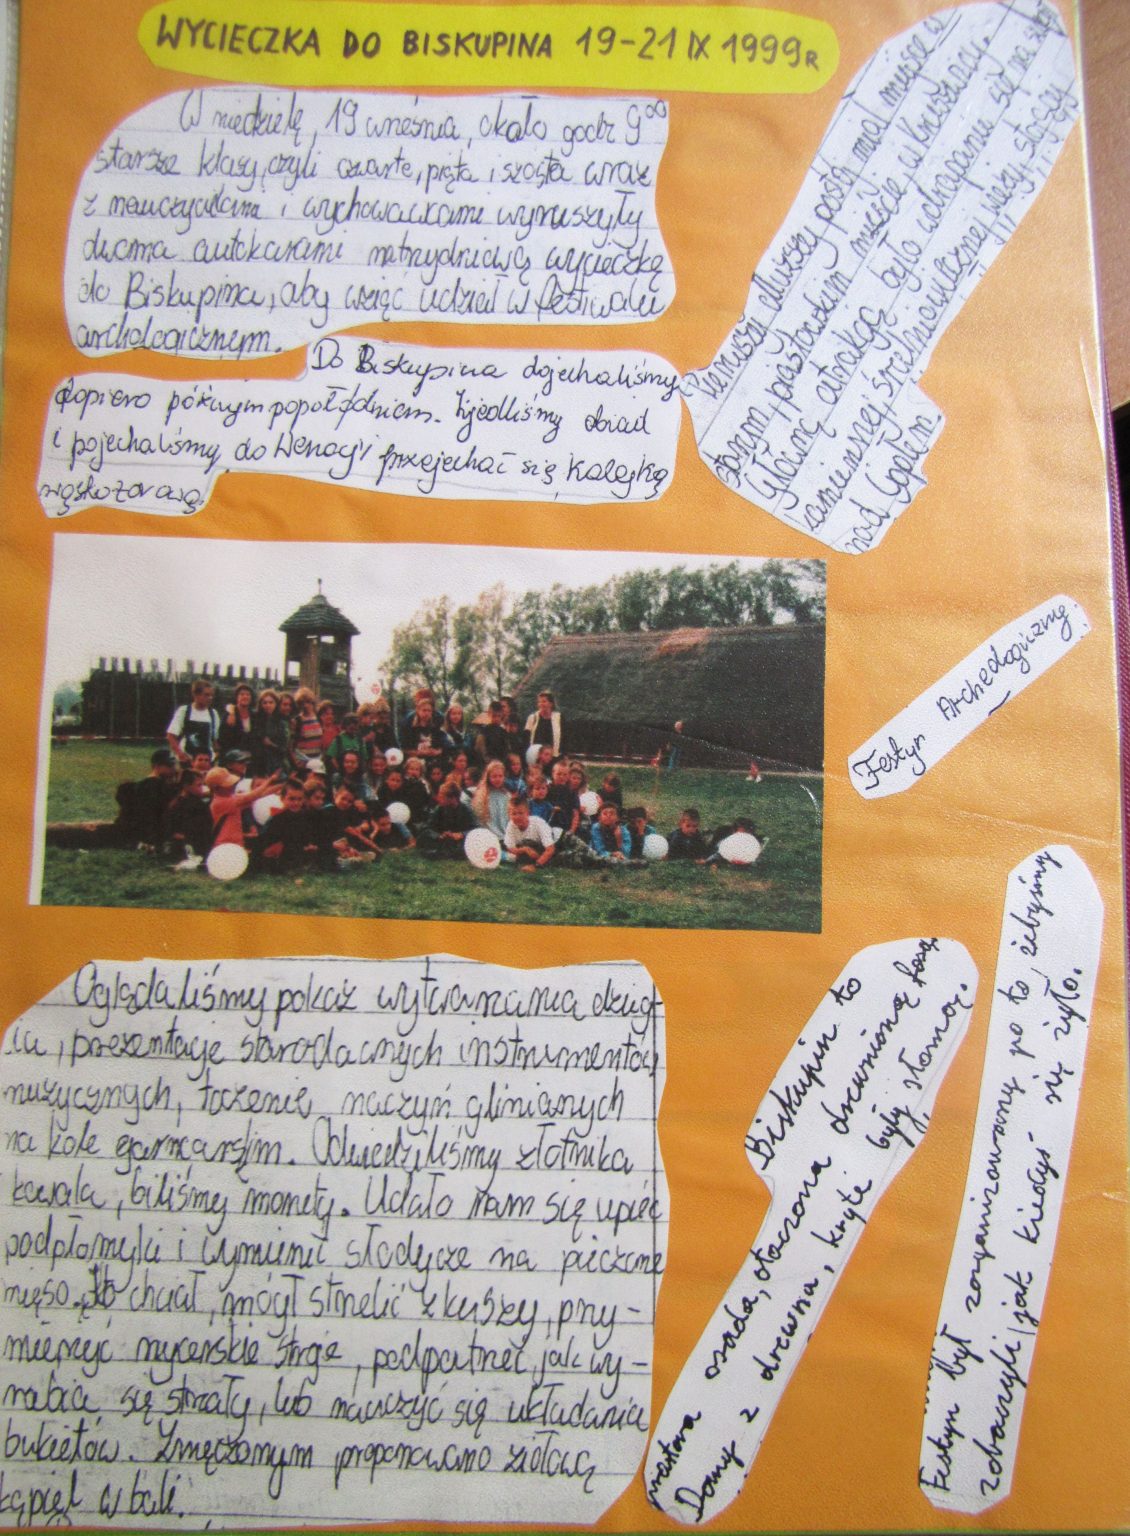 WYCIECZKA DO BISKUPINA 19-21 IX 1999R
W niedzielę, 19 wreśnia, około godz 9⁰⁰
starsze klasy, czyli czwarte, piąta i szósta wraz
z nauczycielami i wychowawcami wyruszyły
dwoma autokarami na trzydniową wycieczkę
do Biskupina, aby wziąć udział w festiwalu
archologicznym.
Do Biskupina dojechaliśmy
dopiero późnym popołudniem. Zjedliśmy obiad
i pojechaliśmy do Wenecji przejechać się kolejką
wąskotorową.
Pierwszy dłuższy postój miał miejsce w
starym, piastowskim mieście, w Kruszwicy.
Główną atrakcją było wdrapanie się na
kamiennej, średniowiecznej wieży, stojącej
nad Gopłem.
Festyn Archeologiczny
Oglądaliśmy pokaz wytwarzania dzieg-
ciu, prezentacje starodawnych instrumentów
muzycznych, toczenie naczyń glinianych
na kole garncarskim. Odwiedziliśmy złotnika
kowala, biliśmy monety. Udało nam się upiec
podpłomyki i wymienić słodycze na pieczone
mięso. Kto chciał, mógł strzelić z kuszy, przy-
mierzyć rycerskie stroje, podpatrzeć jak wy-
rabia się strzały, lub nauczyć się układania
bukietów. Zmęczonym proponowano ziołową
kąpiel w bali.
Biskupin to
prastara osada, otoczona drewnianą fosą.
Domy z drewna, kryte były słomą.
Festyn był zorganizowany po to, żebyśmy
zobaczyli jak kiedyś się żyło.